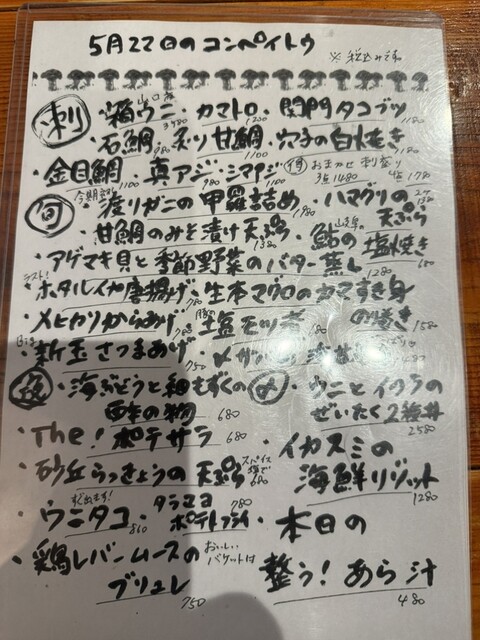 5月22日のコンペイトウ
※税込みです
刺
・箱ウニ 山口産 3980 ・カマトロ 1200 ・関門タコブツ 1180
・石鯛 980 ・炙り甘鯛 1100 ・穴子の白焼き 1180
・金目鯛 1100 ・真アジ 980 ・シマアジ 1100 得 おまかせ刺盛り 3点1480 4点1780
旬
・渡りガニの甲羅詰め 1980 ・ハマグリの天ぷら
・甘鯛のみそ漬け天ぷら 1380 ・鮎の塩焼き 680
・アゲマキ貝と季節野菜のバター蒸し 1280
ラスト!
・ホタルイカ唐揚げ 780 ・生本マグロのカマすき身の巻き 1580
・メヒカリからあげ 780 ・塩モツ煮
・新玉さつまあげ 750
・海ぶどうと細もずくの酢の物 680
〆
・ウニとイクラのぜいたく2種丼 2580
・The!ポテサラ 680
・イカスミの海鮮リゾット 1280
・砂丘らっきょうの天ぷら スパイス塩で 680
すぐ出ます!
・ウニタコ 860 ・タラマヨポテトフライ 780
・本日の整う!あら汁 480
・鶏レバームースのブリュレ おいしいバケットは 750